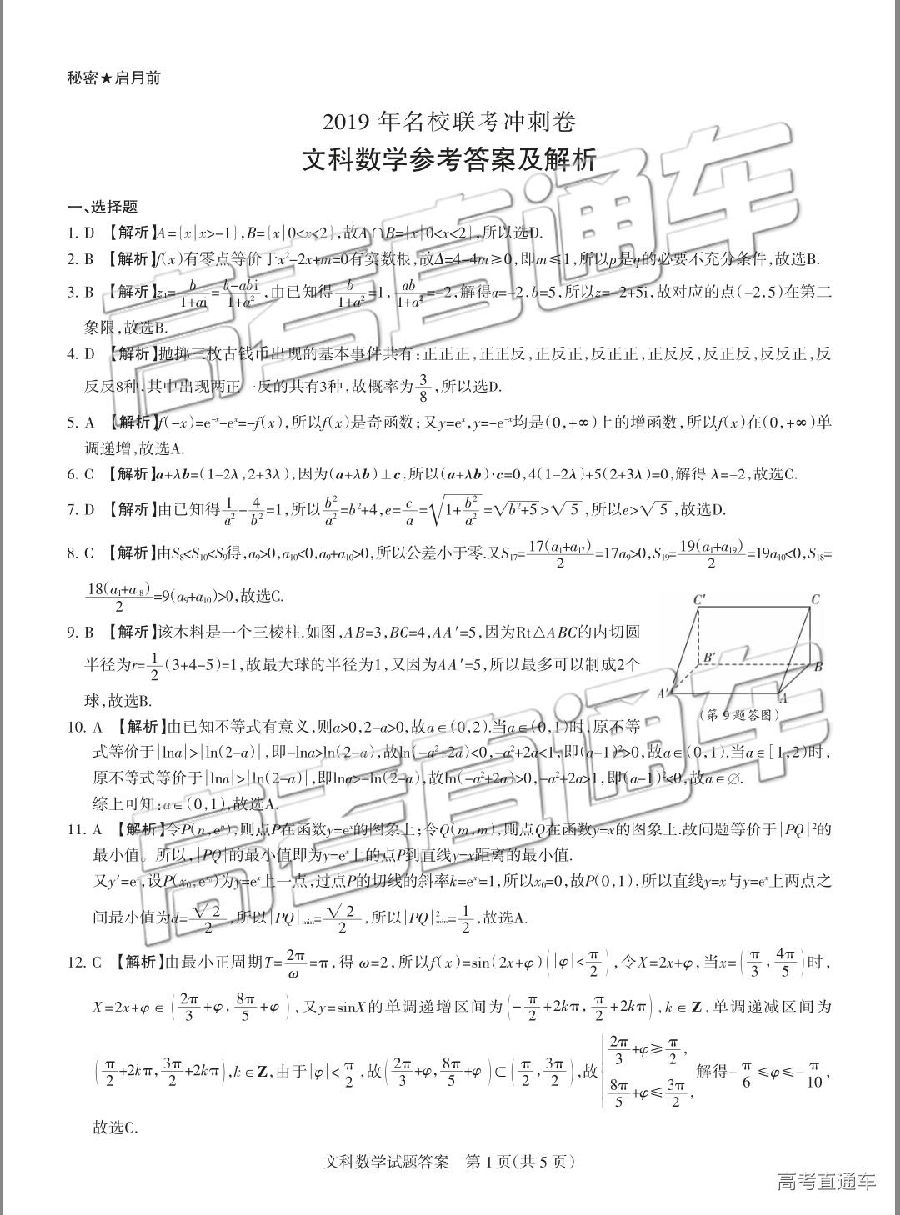 秘密★启用前
2019 年名校联考冲刺卷
文科数学参考答案及解析
一、选择题
1. D 【解析】A={x|x>-1},B={x|0<x<2},故A∩B={x|0<x<2},所以选D.
2. B 【解析】f(x)有零点等价于x²-2x+m=0有实数根,故Δ=4-4m≥0,即m≤1,所以p是q的必要不充分条件,故选B.
3. B 【解析】z₁=b/(1+ai)=(b-abi)/(1+a²),由已知得b/(1+a²)=1,ab/(1+a²)=-2,解得a=-2,b=5,所以z=-2+5i,故对应的点(-2,5)在第二
象限,故选B.
4. D 【解析】抛掷三枚古钱币出现的基本事件共有:正正正,正正反,正反正,反正正,正反反,反正反,反反正,反
反反8种,其中出现两正一反的共有3种,故概率为3/8,所以选D.
5. A 【解析】f(-x)=e⁻ˣ-eˣ=-f(x),所以f(x)是奇函数;又y=eˣ,y=-e⁻ˣ均是(0,+∞)上的增函数,所以f(x)在(0,+∞)单
调递增,故选A.
6. C 【解析】a+λb=(1-2λ,2+3λ),因为(a+λb)⊥c,所以(a+λb)·c=0,4(1-2λ)+5(2+3λ)=0,解得 λ=-2,故选C.
7. D 【解析】由已知得1/a²-4/b²=1,所以b²/a²=b²+4,e=c/a=√(1+b²/a²)=√(b²+5)>√5,所以e>√5,故选D.
8. C 【解析】由S₈<S₁₀<S₉得,a₉>0,a₁₀<0,a₉+a₁₀>0,所以公差小于零.又S₁₇=17(a₁+a₁₇)/2=17a₉>0,S₁₉=19(a₁+a₁₉)/2=19a₁₀<0,S₁₈=
18(a₁+a₁₈)/2=9(a₉+a₁₀)>0,故选C.
9. B 【解析】该木料是一个三棱柱,如图,AB=3,BC=4,AA′=5,因为Rt△ABC的内切圆
半径为r=1/2(3+4-5)=1,故最大球的半径为1,又因为AA′=5,所以最多可以制成2个
球,故选B.
C′ C
B′ B
A′ A
(第9题答图)
10. A 【解析】由已知不等式有意义,则a>0,2-a>0,故a∈(0,2).当a∈(0,1)时,原不等
式等价于|lna|>|ln(2-a)|,即-lna>ln(2-a),故ln(-a²+2a)<0,-a²+2a<1,即(a-1)²>0,故a∈(0,1).当a∈[1,2)时,
原不等式等价于|lna|>|ln(2-a)|,即lna>-ln(2-a),故ln(-a²+2a)>0,-a²+2a>1,即(a-1)²<0,故a∈∅.
综上可知:a∈(0,1),故选A.
11. A 【解析】令P(n,eⁿ),则点P在函数y=eˣ的图象上;令Q(m,m),则点Q在函数y=x的图象上.故问题等价于|PQ|²的
最小值。所以,|PQ|的最小值即为y=eˣ上的点P到直线y=x距离的最小值.
又y′=eˣ,设P(x₀,eˣ⁰)为y=eˣ上一点,过点P的切线的斜率k=eˣ=1,所以x₀=0,故P(0,1),所以直线y=x与y=eˣ上两点之
间最小值为d=√2/2,所以|PQ|min=√2/2,所以|PQ|²min=1/2,故选A.
12. C 【解析】由最小正周期T=2π/ω=π,得 ω=2,所以f(x)=sin(2x+φ)(|φ|<π/2),令X=2x+φ,当x=(π/3,4π/5)时,
X=2x+φ∈(2π/3+φ,8π/5+φ),又y=sinX的单调递增区间为(-π/2+2kπ,π/2+2kπ),k∈Z,单调递减区间为
(π/2+2kπ,3π/2+2kπ),k∈Z,由于|φ|<π/2,故(2π/3+φ,8π/5+φ)⊂(π/2,3π/2),故{2π/3+φ≥π/2,8π/5+φ≤3π/2,解得-π/6≤φ≤-π/10,
故选C.
文科数学试题答案 第 1 页(共 5 页)
高考直通车
高考直通车
高考直通车